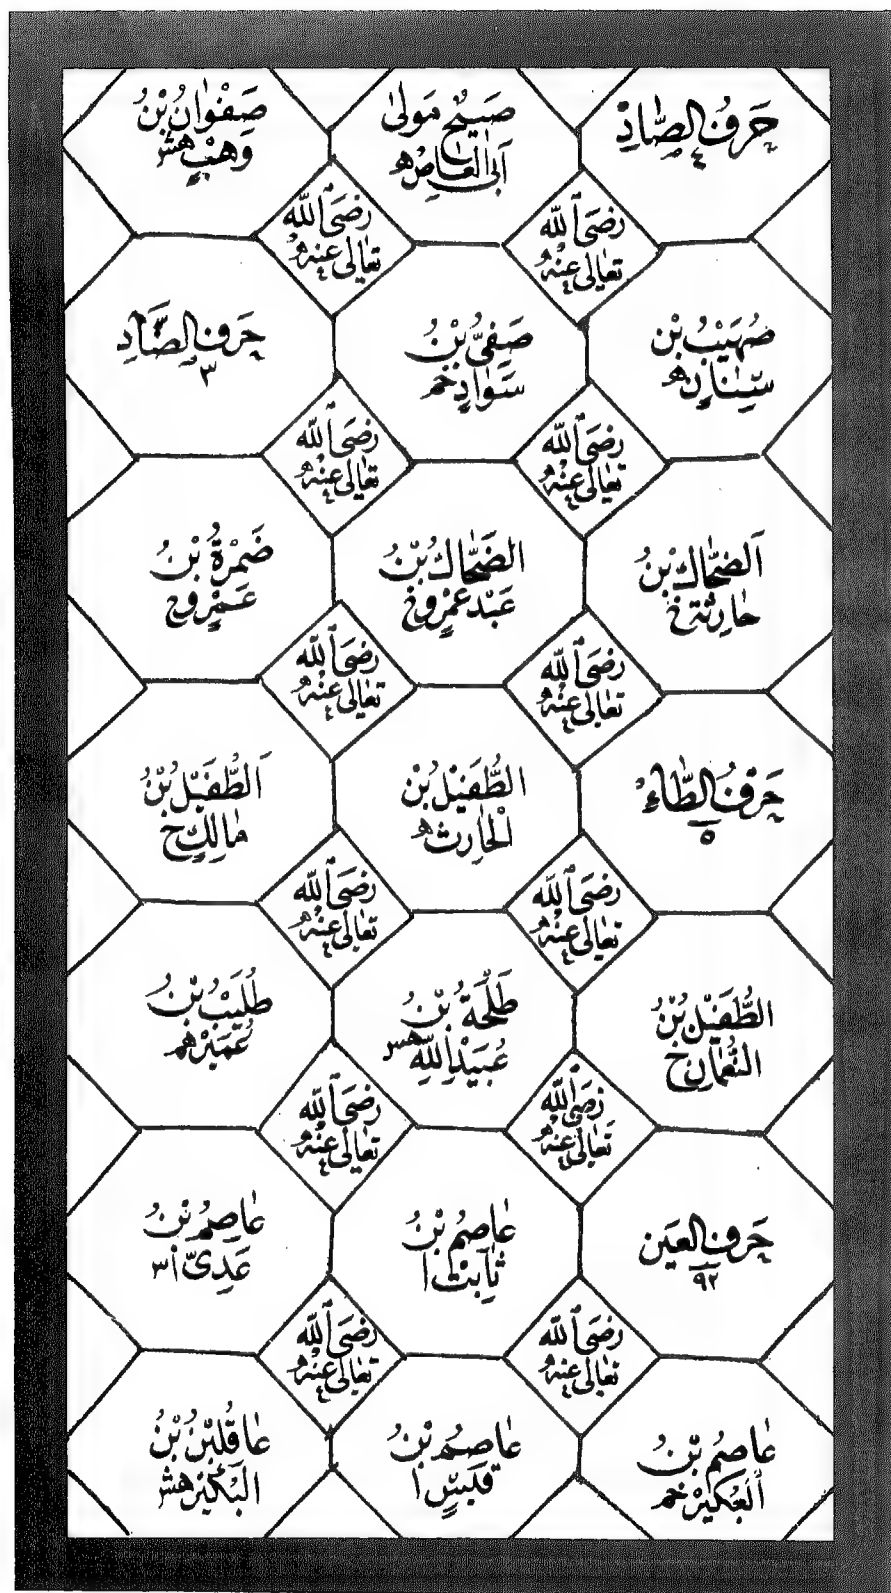 حَرْفُ الصَّادِ
٤
صَبِيْحٌ مَوْلٰى
اَبِى الْعَاصِ ھ
صَفْوَانُ بْنُ
وَهْبٍ هش
رَضِىَ اللّٰه
تَعَالٰى عَنْهُ
رَضِىَ اللّٰه
تَعَالٰى عَنْهُ
صُهَيْبُ بْنُ
سِنَانٍ ھ
صَفِىُّ بْنُ
سَوَادٍ خم
حَرْفُ الضَّادِ
٣
رَضِىَ اللّٰه
تَعَالٰى عَنْهُ
رَضِىَ اللّٰه
تَعَالٰى عَنْهُ
اَلضَّحَّاكُ بْنُ
حَارِثَةَ خ
الضَّحَّاكُ بْنُ
عَبْدِ عَمْرٍو خ
ضَمْرَةُ بْنُ
عَمْرٍو خ
رَضِىَ اللّٰه
تَعَالٰى عَنْهُ
رَضِىَ اللّٰه
تَعَالٰى عَنْهُ
حَرْفُ الطَّاءِ
٥
الطُّفَيْلُ بْنُ
الْحَارِثِ ھ
اَلطُّفَيْلُ بْنُ
مَالِكٍ خ
رَضِىَ اللّٰه
تَعَالٰى عَنْهُ
رَضِىَ اللّٰه
تَعَالٰى عَنْهُ
الطُّفَيْلُ بْنُ
النُّعْمَانِ خ
طَلْحَةُ بْنُ
عُبَيْدِ اللّٰهِ هس
طُلَيْبُ بْنُ
عُمَيْرٍ هم
رَضِىَ اللّٰه
تَعَالٰى عَنْهُ
رَضِىَ اللّٰه
تَعَالٰى عَنْهُ
حَرْفُ الْعَيْن
٩٢
عَاصِمُ بْنُ
ثَابِتٍ ا
عَاصِمُ بْنُ
عَدِىّ ا٣
رَضِىَ اللّٰه
تَعَالٰى عَنْهُ
رَضِىَ اللّٰه
تَعَالٰى عَنْهُ
عَاصِمُ بْنُ
الْعُكَيْرِ خم
عَاصِمُ بْنُ
قَيْسٍ ا
عَاقِلُ بْنُ بْنُ
الْبُكَيْرِ هش